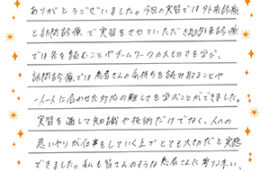 ありがとうございました。今回の実習では外来診療
と訪問診療で実習をさせていただき、外来診療
では先を読むことやチームワークの大切さを学び、
訪問診療では患者さんの気持ちを読み取ることや
一人一人に合わせた対応の難しさを学ぶことができました。
実習を通して知識や技術だけでなく、人への
思いやりが仕事をしていく上でとても大切だと実感
できました。私も皆さんのような患者さんに寄り添い、